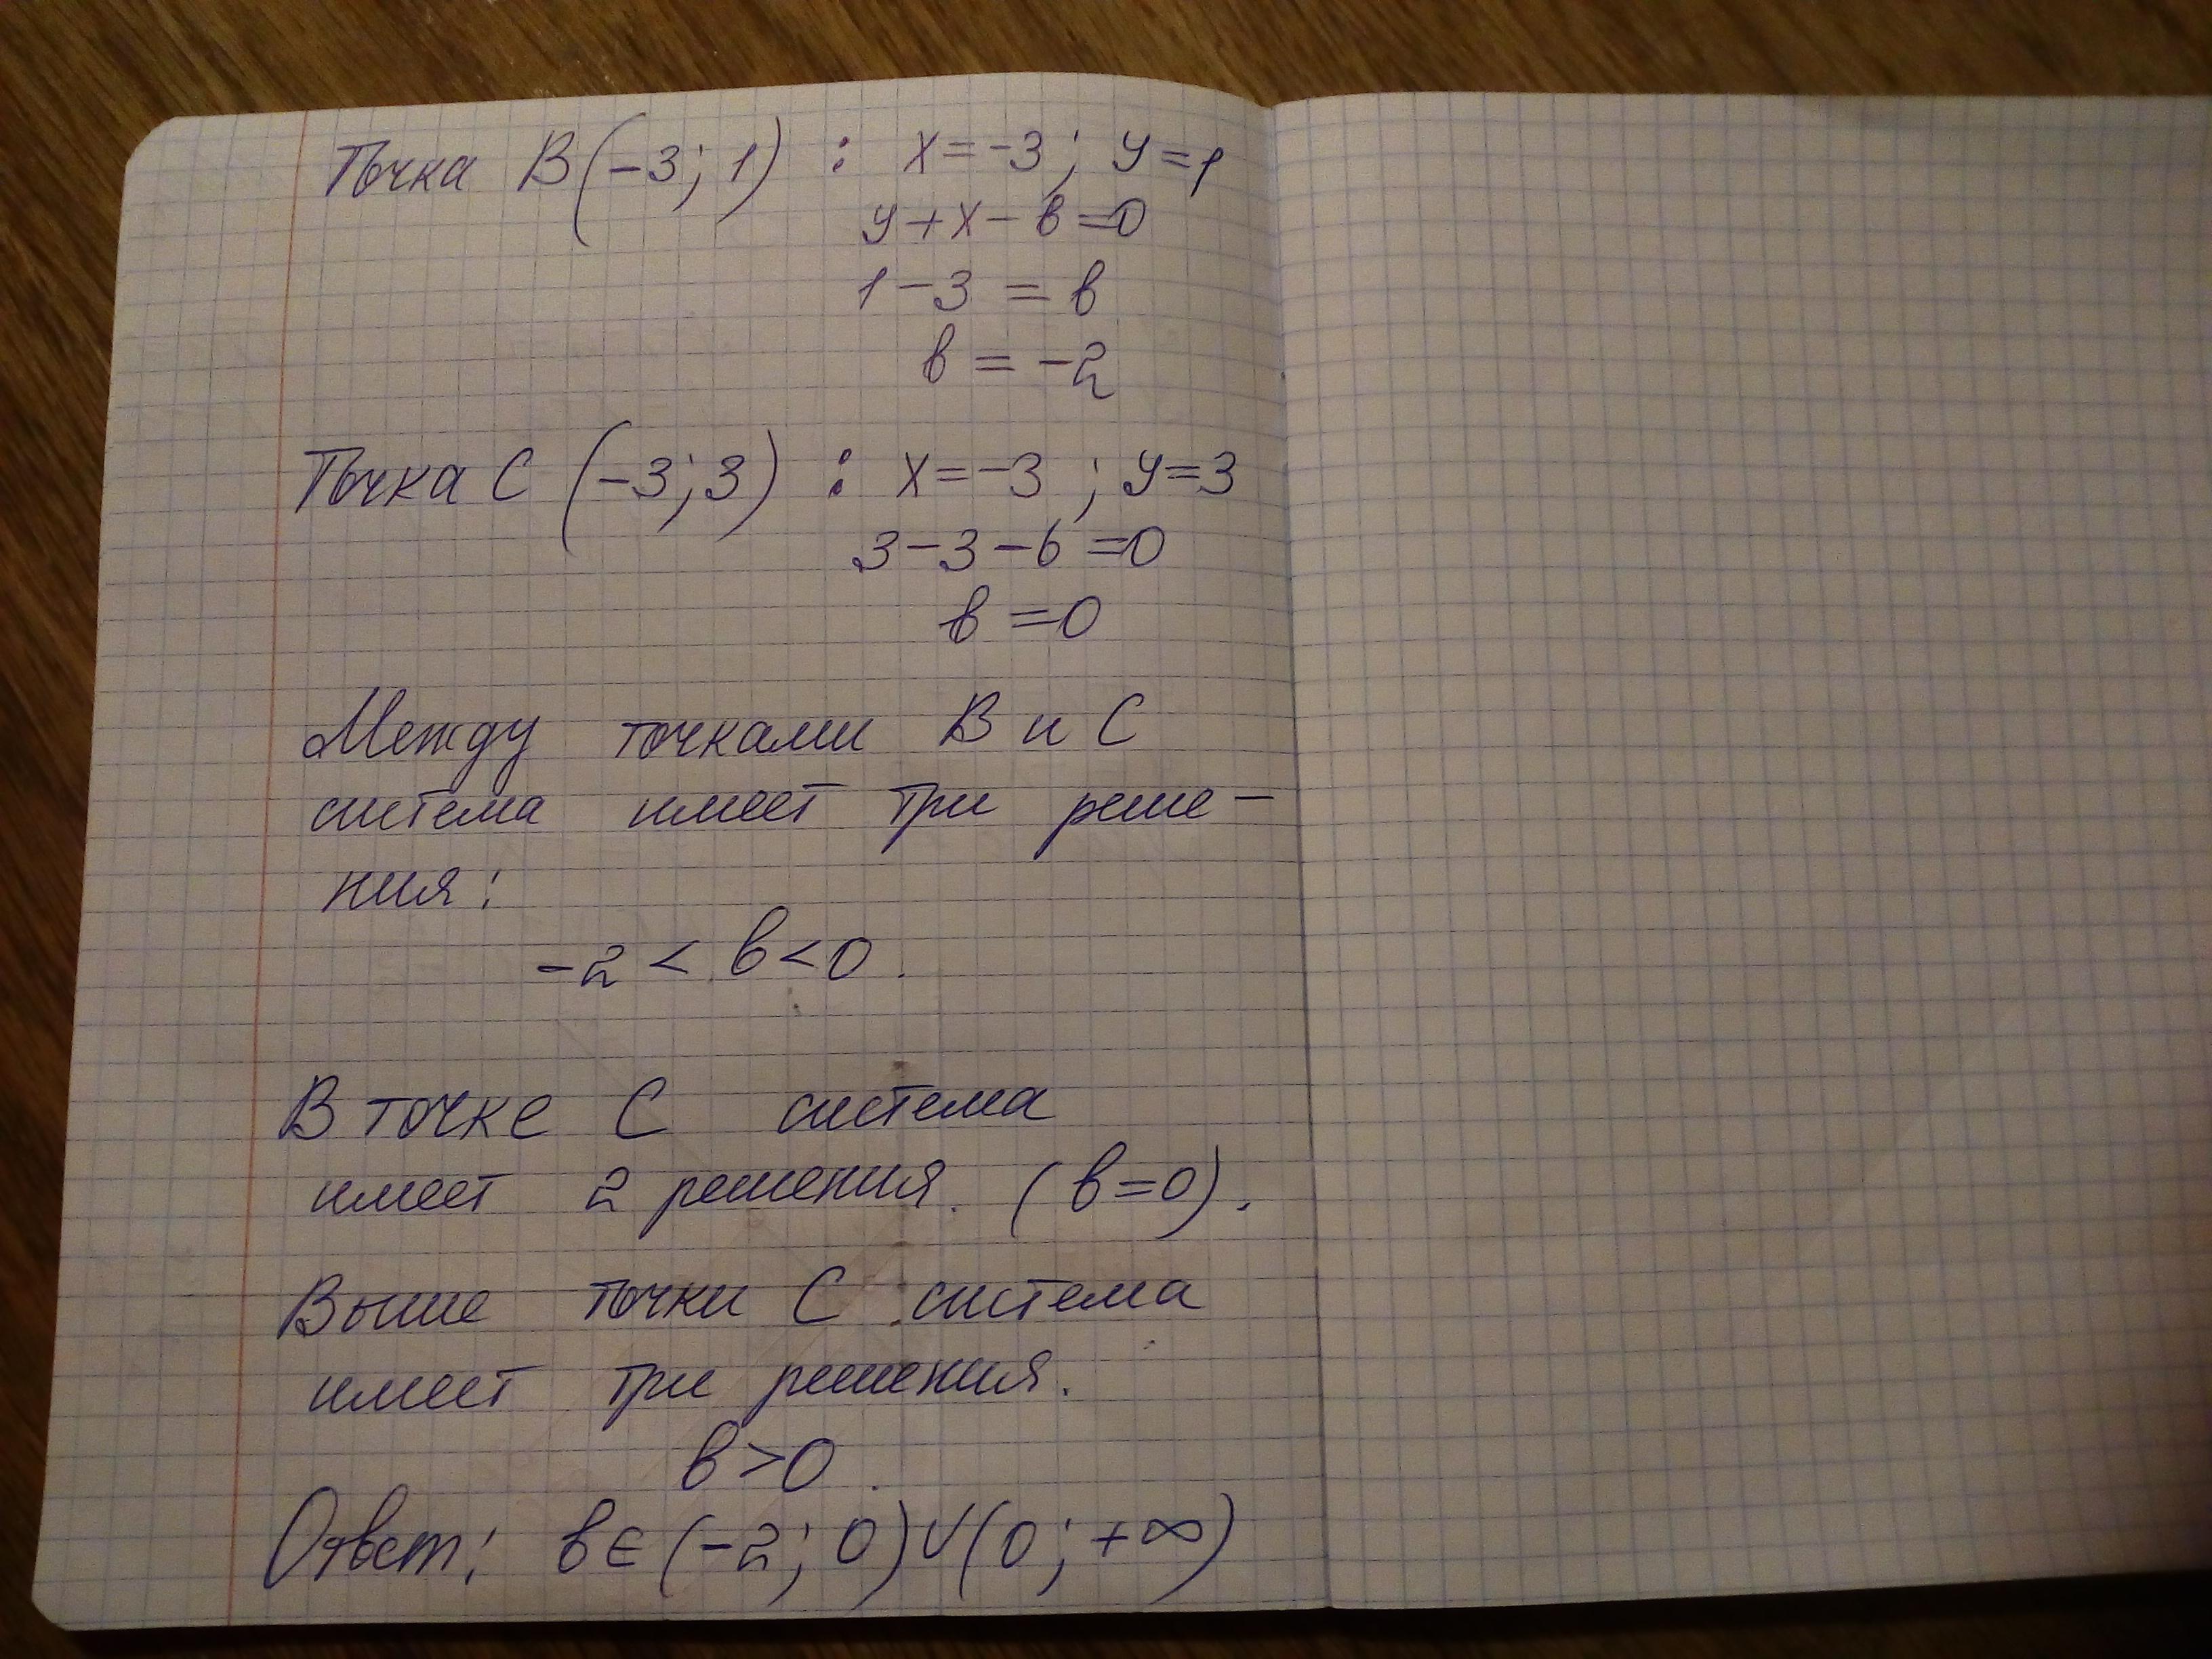 Точка B(-3; 1) : x=-3; y=1
y+x-в=0
1-3 = в
в = -2
Точка C (-3; 3) : x=-3 ; y=3
3-3-в=0
в =0
Между точками B и C
система имеет три реше-
ния:
-2 < в<0.
В точке C система
имеет 2 решения. (в=0).
Выше точки C система
имеет три решения.
в>0.
Ответ: в∈(-2; 0)∪(0; +∞)